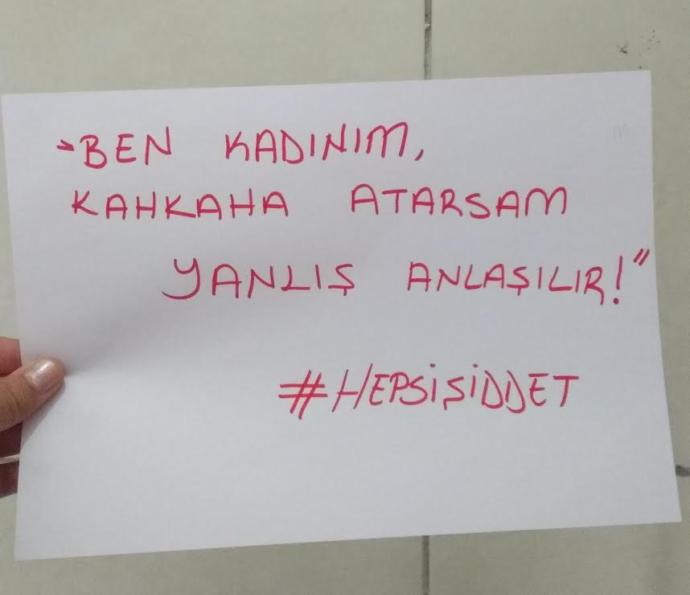 "BEN KADINIM,
KAHKAHA ATARSAM
YANLIŞ ANLAŞILIR!"
#HEPSİŞİDDET